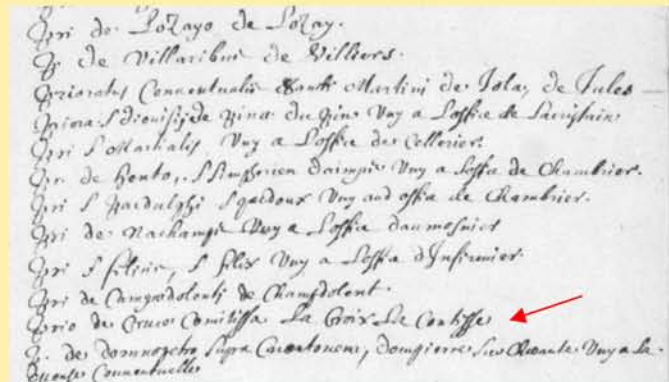 Pri de Lozayo de Lozay.
P de Villaribus de Villiers.
Prioratus Conventualis Sancti Martini de Iola, de Iules
Priora. S dionisii de pinu du pin Vny a L'office de Sacristain
Pri S Martialis, Vny a L'office de Cellerier.
Pri de S Simphorien Vny a L'office de Chambrier.
Pri S Vny aud office de Chambrier.
Pri de Nachamps Vny a L'office d'aumosnier
Pri S felicis, S felix Vny a L'office d'Infirmier.
Pri de Campodolenti de Champdolent.
Prio de Cruce Comitissa La Croix La Contisse
P. de domnopetro supra Carantonem, dompierre sur Charante Vny a La
Conventuelle